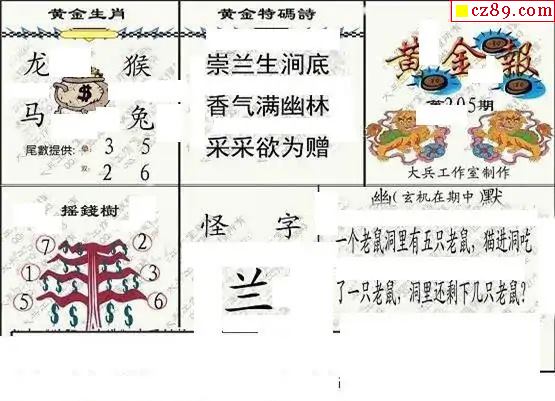 cz89.com
黄金生肖
龙 猴
马 兔
尾數提供: 單: 3 5
双: 2 6
黄金特碼詩
崇兰生涧底
香气满幽林
采采欲为赠
黄金報
第205期
大兵工作室制作
摇錢樹
7 2
1 3
5 6
怪 字
兰
幽(玄机在期中)默
一个老鼠洞里有五只老鼠,猫进洞吃
了一只老鼠,洞里还剩下几只老鼠?